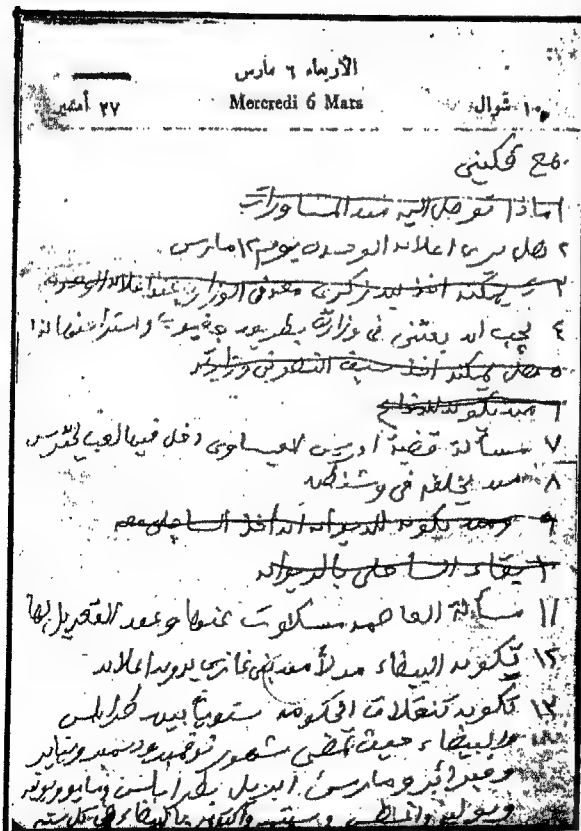 الأربعاء ٦ مارس
٢٧ أمشير Mercredi 6 Mars ١٠ شوال
مع فكيني
١ ماذا توصل اليه من المشاورات
٢ هل يرى اعلان الوحدة يوم ١٢ مارس
٣ يمكن اخذ فكرى معه في الوزارة عند اعلان الوحدة
٤ يجب ان يعتنى في وزارته بطريق
٥ هل يمكن اخذ سيف النصر في وزارته
٦ من تكون للدفاع
٧ مسألة قضية ادريس العيساوى دخل فيها لعب
٨ من يخلفه في وشنطن
٩ ومن يكون للديوان اذا اخذ الساحلى معه
١٠ بقاء الساحلى بالديوان
١١ مسألة العاصمه مسكوت عنها وعند التعديل لها
١٢ تكون البيضاء بدلا من بنى غازى بدون اعلان
١٣ تكون تنقلات الحكومه سنويا بين طرابلس
والبيضاء حيث تمضى شهور نوفمبر ودسمبر ويناير
وفبرائر ومارس ابريل بطرابلس ومايو ويونيه
ويوليه واغسطس وسبتمبر واكتوبر بالبيضاء في كل سنه